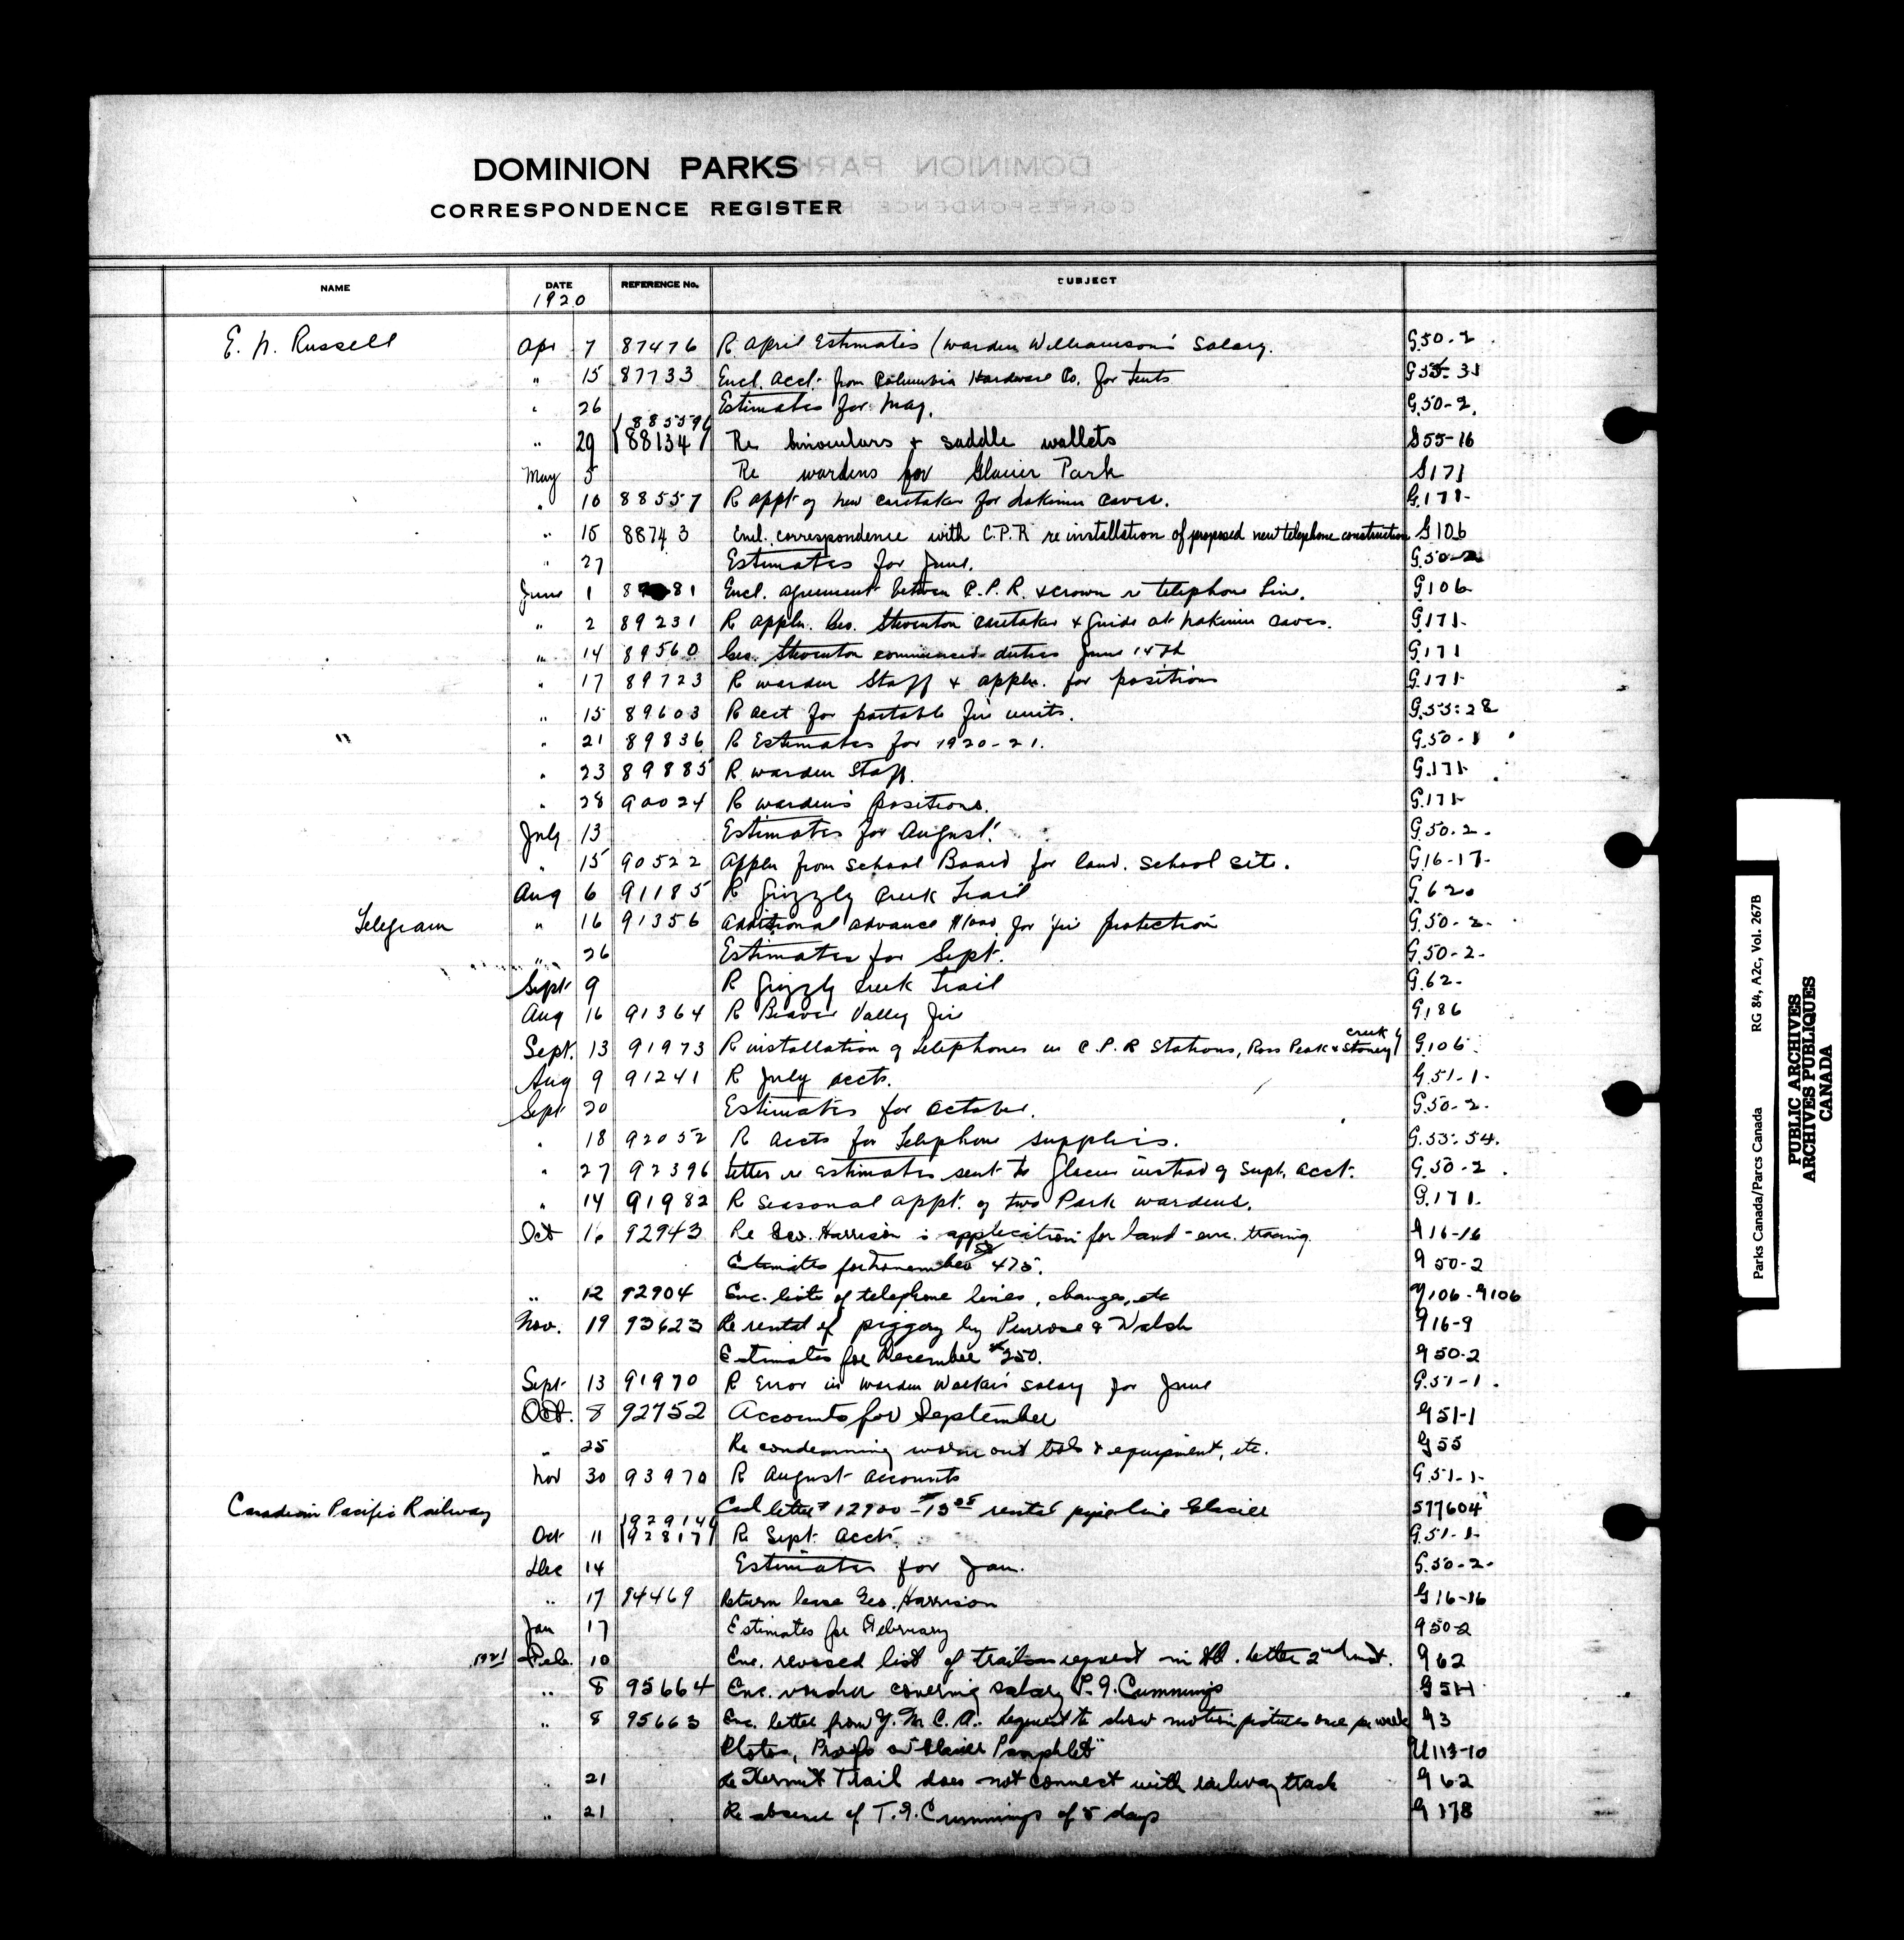 DOMINION PARKS
CORRESPONDENCE REGISTER
NAME DATE REFERENCE No. SUBJECT
1920
E. N. Russell Apr 7 87476 R April Estimates (Warden Williamson's Salary. G.50-2
" 15 87733 Encl. Acct. from Columbia Hardware Co. for tents G55-31
" 26 Estimates for May. G.50-2.
" 29 {88559} {88134} Re binoculars & saddle wallets G55-16
May 5 Re wardens for Glacier Park G171
" 10 88557 R appt of new caretaker for Nakimu Caves. G.171-
" 15 88743 Encl. correspondence with C.P.R re installation of proposed new telephone construction G106
" 27 Estimates for June. G.50-2
June 1 81 Encl. agreement between C.P.R. & Crown re telephone line. G106
" 2 89231 R appln. Geo. Steventon caretaker & guide at Nakimu Caves. G.171-
" 14 89560 Geo. Steventon commenced duties June 14th G.171
" 17 89723 R warden staff & appln. for positions G.171-
" 15 89603 R acct for portable fire units. G.55-28
" " 21 89836 R Estimates for 1920-21. G.50-1
" 23 89885 R warden staff. G.171-
" 28 90024 R warden's positions. G.171-
July 13 Estimates for August. G.50.2-
" 15 90522 Appln from School Board for land. School site. G.16-17-
Aug 6 91185 R Grizzly Creek Trail G.620
Telegram " 16 91356 Additional advance $1000 for fire protection G.50-2-
" 26 Estimates for Sept. G.50-2-
Sept 9 R Grizzly Creek Trail G.62-
Aug 16 91364 R Beaver Valley Fire G.186
Sept. 13 91973 R installation of telephones in C.P.R Stations, Ross Peak & Stoney Creek G106
Aug 9 91241 R July accts. G.51-1-
Sept 20 Estimates for October. G.50-2-
" 18 92052 R accts for telephone supplies. G.55-54.
" 27 92396 Letter re estimates sent to Glacier instead of Supt. acct. G.50-2
" 14 91982 R seasonal appt. of two Park wardens. G.171-
Oct 16 92943 Re Geo. Harrison's application for land - enc. tracing G16-16
Estimates for November 475. G 50-2
" 12 92904 Enc. lists of telephone lines, changes, etc G106-G106
Nov. 19 93623 Re rental of piggery by Penrose & Walsh G16-9
Estimates for December $250. G 50-2
Sept 13 91970 R Error in warden Walker's salary for June G.51-1.
Oct. 8 92752 Accounts for September G51-1
" 25 Re condemning worn out tools & equipment, etc. G55
Nov 30 93970 R August accounts G.51-1-
Canadian Pacific Railway letter # 12900 - $15 rental pipe line Glacier 577604
Oct 11 {92914} {92817} R Sept. Accts. G.51-1-
Dec 14 Estimates for Jan. G.50-2-
" 17 94469 Return lease Geo. Harrison G16-16
Jan 17 Estimates for February G50-2
1921 Feb. 10 Enc. revised list of trails on request in letter 2nd inst. G62
" 8 95664 Enc. voucher covering salary P. J. Cummings G51-1
" 8 95663 Enc. letter from Y.M.C.A. request to show motion pictures once per week G3
Photos, Proofs "Glacier Pamphlet" U113-10
" 21 Re Hermit Trail does not connect with railway track G62
" 21 Re absence of T. J. Cummings of 5 days G178
Parks Canada/Parcs Canada RG 84, A2c, Vol. 267B
PUBLIC ARCHIVES
ARCHIVES PUBLIQUES
CANADA